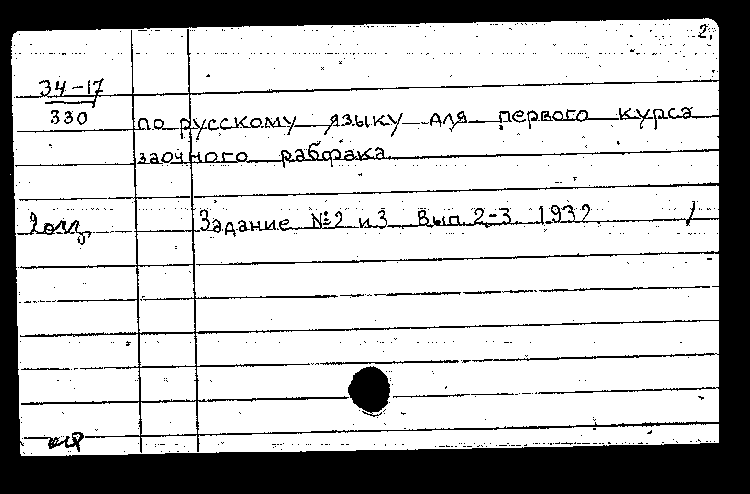 2.
34-17
330
по русскому языку для первого курса
заочного рабфака
Задание №2 и 3 Вып. 2-3 1932